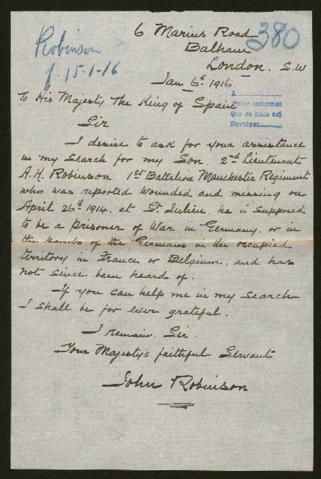 6 Marius Road
Balham
London. S.W
380
Robinson
f. 15-1-16
Jan 6th 1916
To His Majesty The King of Spain
A
Pedir informes
Que se hace así
Devolver
Sir
I desire to ask for your assistance
in my search for my Son 2nd Lieutenant
A.H. Robinson 1st Battalion Manchester Regiment
who was reported wounded and missing on
April 26th 1914, at St Julien, he is supposed
to be a prisoner of War in Germany, or in
the hands of the Germans in the occupied
territory in France or Belgium, and has
not since been heard of.
If you can help me in my search
I shall be for ever grateful.
I remain, Sir
Your Majesty's faithful Servant
John Robinson